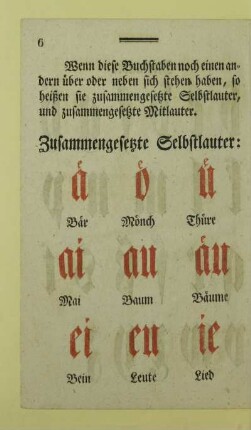 6
Wenn diese Buchstaben noch einen an-
dern über oder neben sich stehen haben, so
heißen sie zusammengesetzte Selbstlauter,
und zusammengesetzte Mitlauter.
Zusammengesetzte Selbstlauter:
aͤ oͤ uͤ
Bär Mönch Thüre
ai au aͤu
Mai Baum Bäume
ei eu ie
Bein Leute Lied